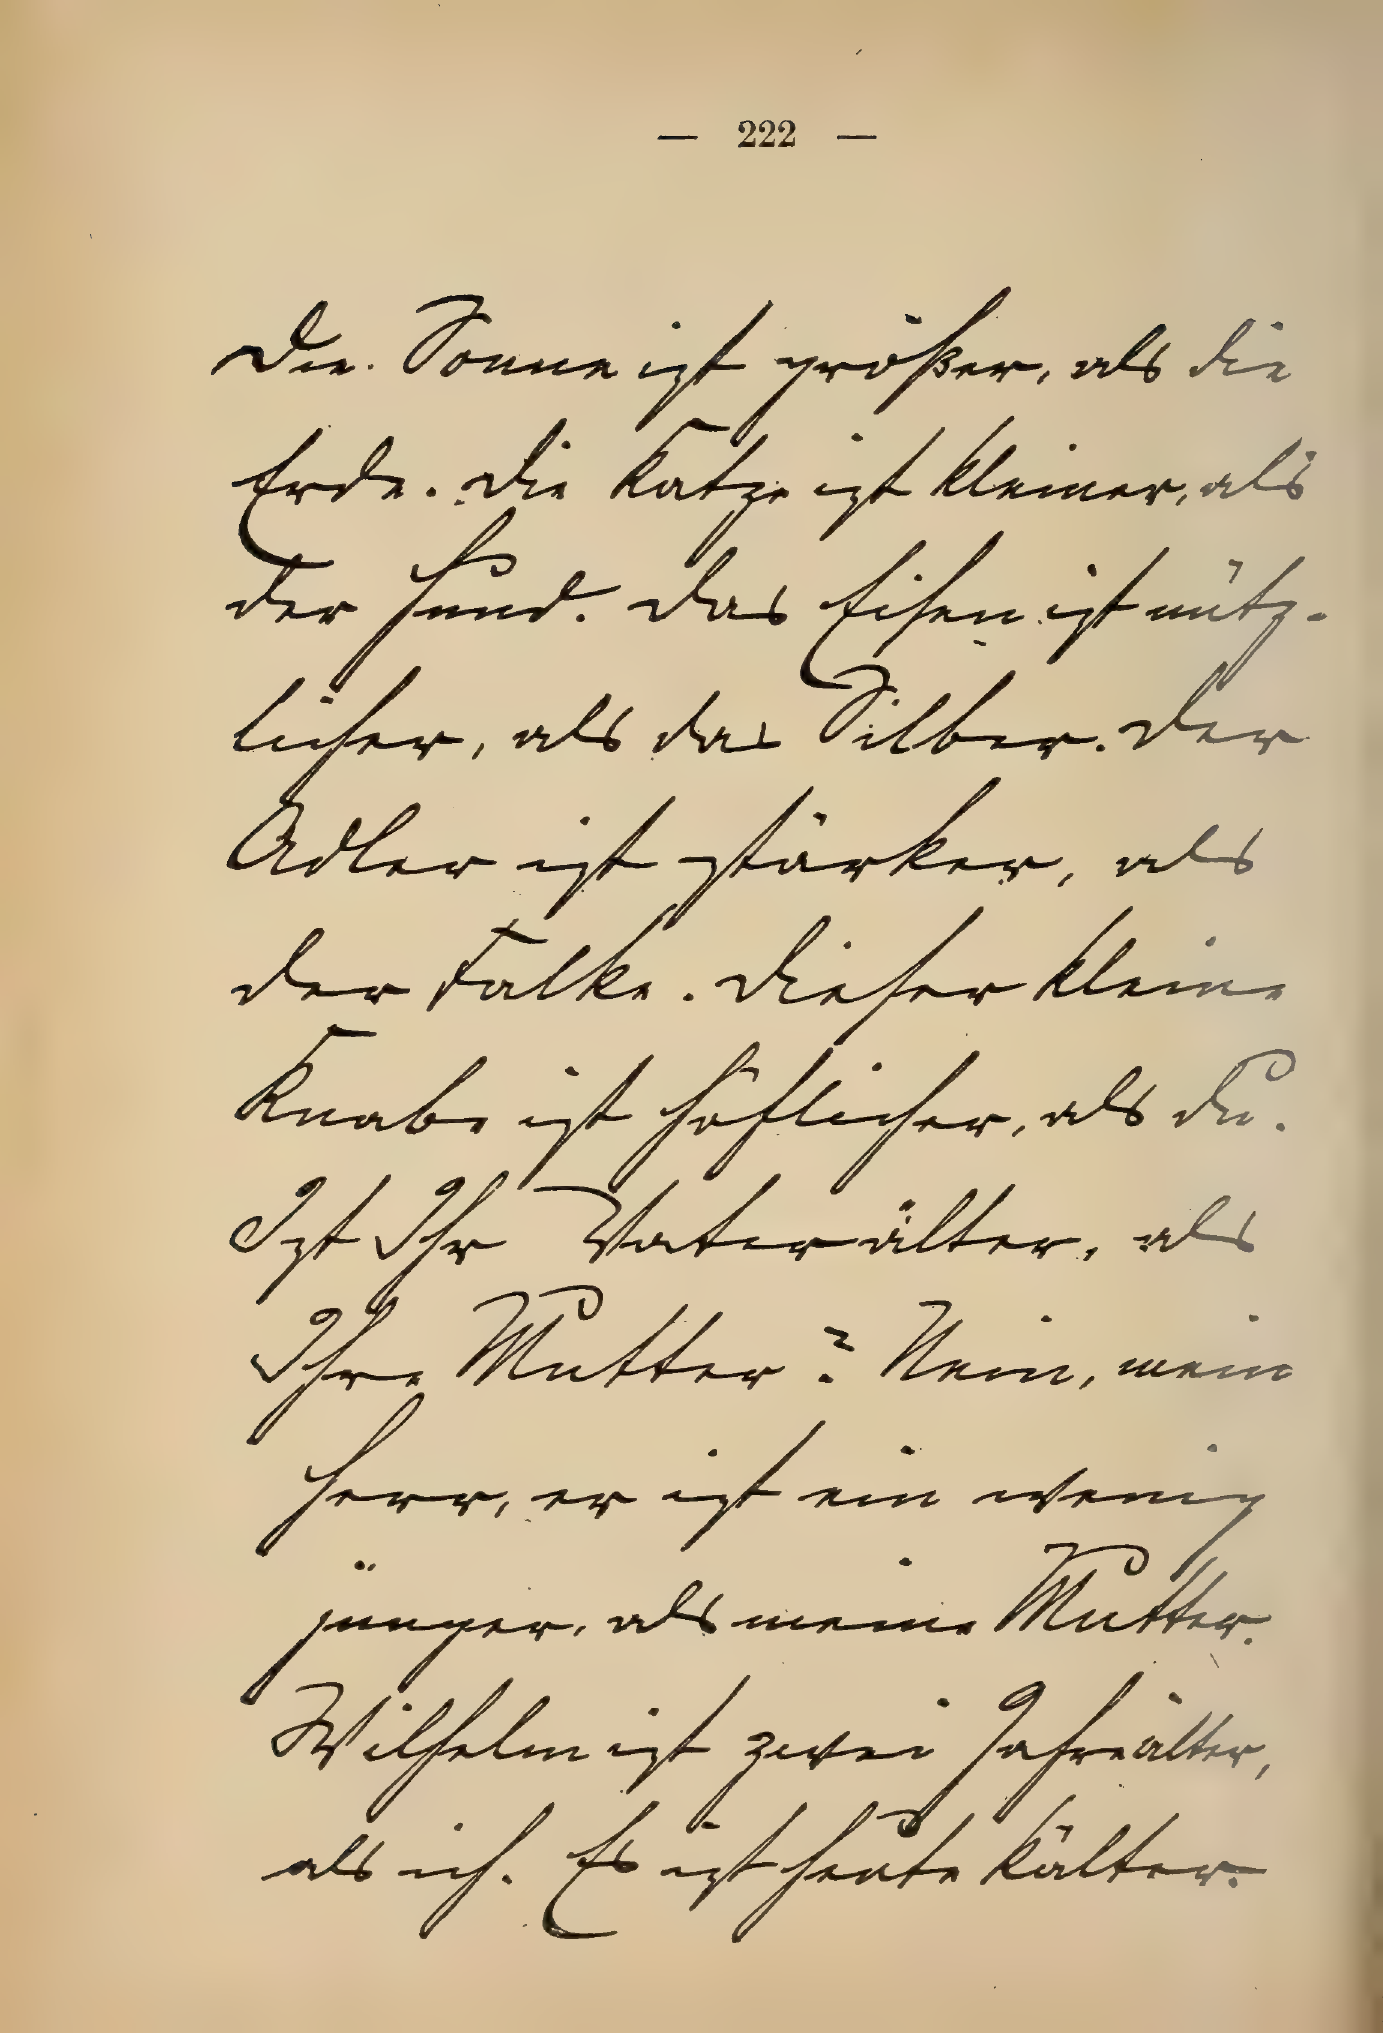 — 222 —
Die Sonne ist größer, als die
Erde. Die Katze ist kleiner, als
der Hund. Das Eisen ist nütz-
licher, als das Silber. Der
Adler ist stärker, als
der Falke. Dieser kleine
Knabe ist höflicher, als du.
Ist Ihr Vater älter, als
Ihre Mutter? Nein, mein
Herr, er ist ein wenig
jünger, als meine Mutter.
Wilhelm ist zwei Jahre älter,
als ich. Es ist heute kälter.